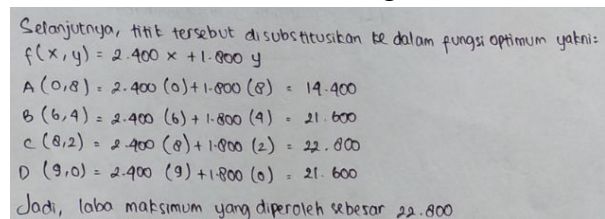 Selanjutnya, titik tersebut disubstitusikan ke dalam fungsi optimum yakni:
f(x,y) = 2.400 x + 1.800 y
A (0,8) = 2.400 (0) + 1.800 (8) = 14.400
B (6,4) = 2.400 (6) + 1.800 (4) = 21.600
C (8,2) = 2.400 (8) + 1.800 (2) = 22.800
D (9,0) = 2.400 (9) + 1.800 (0) = 21.600
Jadi, laba maksimum yang diperoleh sebesar 22.800